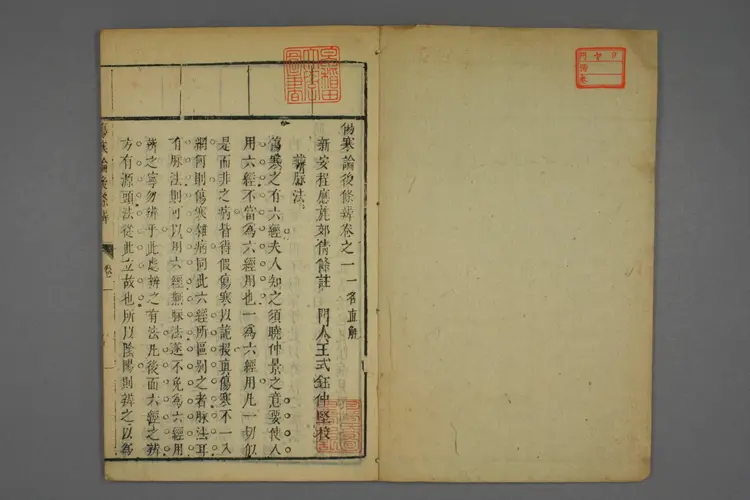 傷寒論後條辨卷之一 一名直解
新安程應旄郊倩條註 門人王式鈺仲堅校
辨脉法
傷寒之有六經夫人知之須曉仲景之意要使人
用六經不當為六經用也一為六經用凡一切似
是而非之病皆得假傷寒以詭投眞傷寒不一入
網何則傷寒雜病同此六經所區別之者脉法耳
有脉法則可以用六經無脉法遂不免為六經用
辨之寧勿辨乎此處辨之有法凡後面六經之辨
方有源頭法從此立故也所以陰陽則辨之以為
傷寒論後條辨 卷一